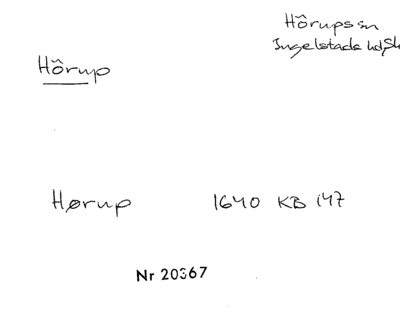 Hörups sn
Ingelstads hd, Sk
Hörup
Hørup 1640 KB 147
Nr 20367